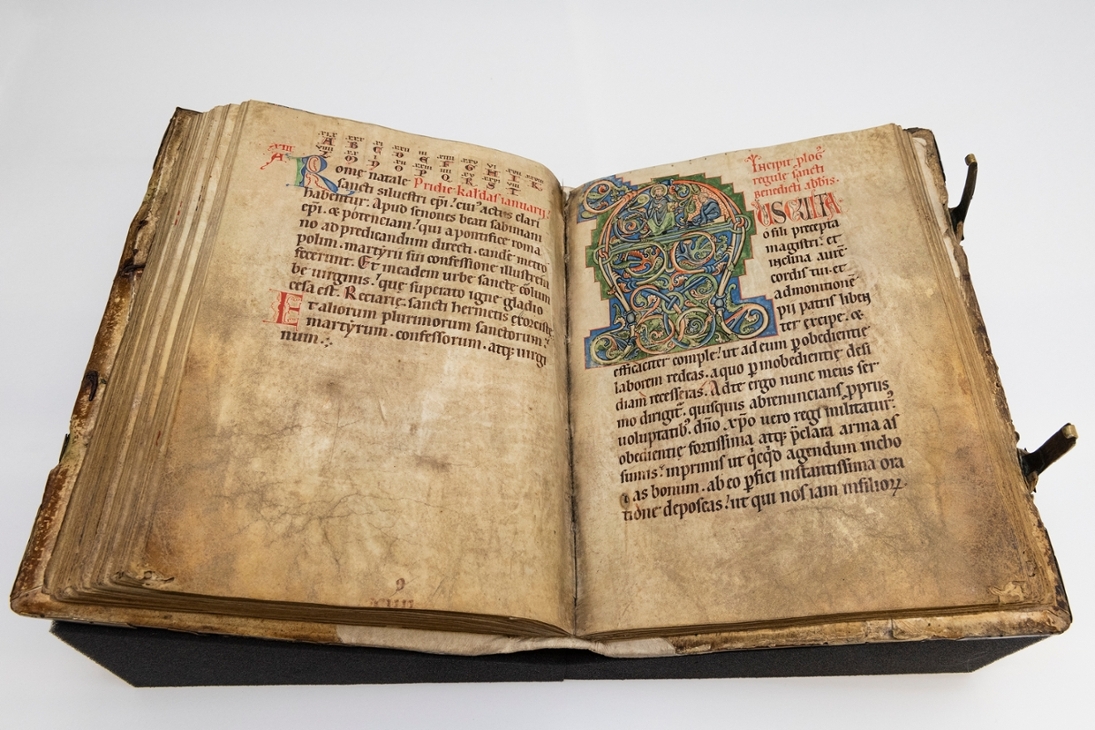 A B C D E F G H I K
R ome natale Pridie kaldas ianuarij.
sancti siluestri epi. cui' actus clari
habentur. Apud senones beati sabiniani
epi. & potenciani. qui a pontifice roma
no ad predicandum directi. eande metro
polim martyrii sui confessione illustrem
fecerunt. Et in eadem urbe sancte colum
be uirginis. que superato igne gladio
cesa est. Reciarie. sancti hermetis exorciste.
E t aliorum plurimorum sanctorum.
martyrum. confessorum. atq; uirgi
num.
xiiii
Incipit plog'
regule sancti
benedicti abbis.
AUSCULTA
o fili precepta
magistri. et
inclina aure
cordis tui. et
admonitione
pii patris liben
ter excipe. &
efficaciter comple. ut ad eum p obedientie
laborem redeas. a quo p inobedientie desi
diam recesseras. Ad te ergo nunc meus ser
mo dirigit. quisquis abrenuncians ppriis
uoluptatib; dno xpo uero regi militatur'.
obedientie fortissima atq; pclara arma as
sumis. in primis ut qcqd agendum incho
as bonum. ab eo pfici instantissima ora
tione deposcas. ut qui nos iam in filioꝝ.